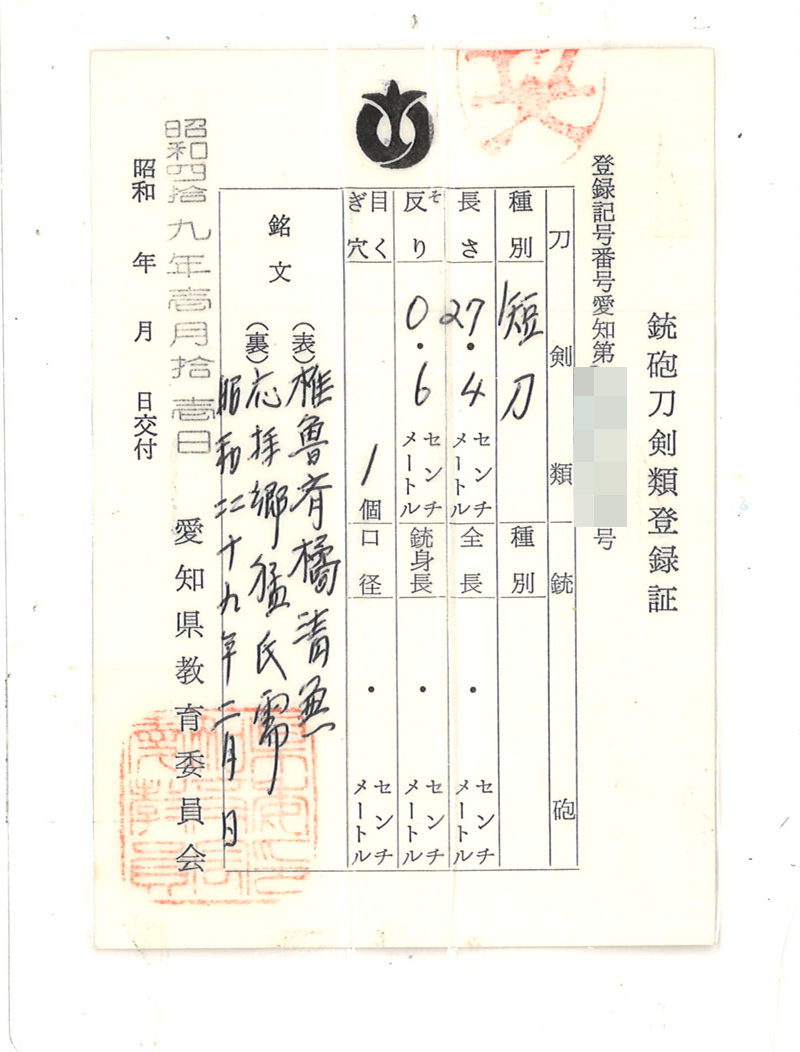 銃砲刀剣類登録証
登録記号番号愛知第 号
刀剣類 銃砲
種別 短刀 種別
長さ 27・4 センチメートル 全長 ・ センチメートル
反り そ 0・6 センチメートル 銃身長 ・ センチメートル
目くぎ穴 1個 口径 ・ センチメートル
銘文
(表)椎魯斉橘清
(裏)応 郷猛氏需
昭和 十九年二月 日
昭和四拾九年壹月拾壹日
昭和 年 月 日交付
愛知県教育委員会